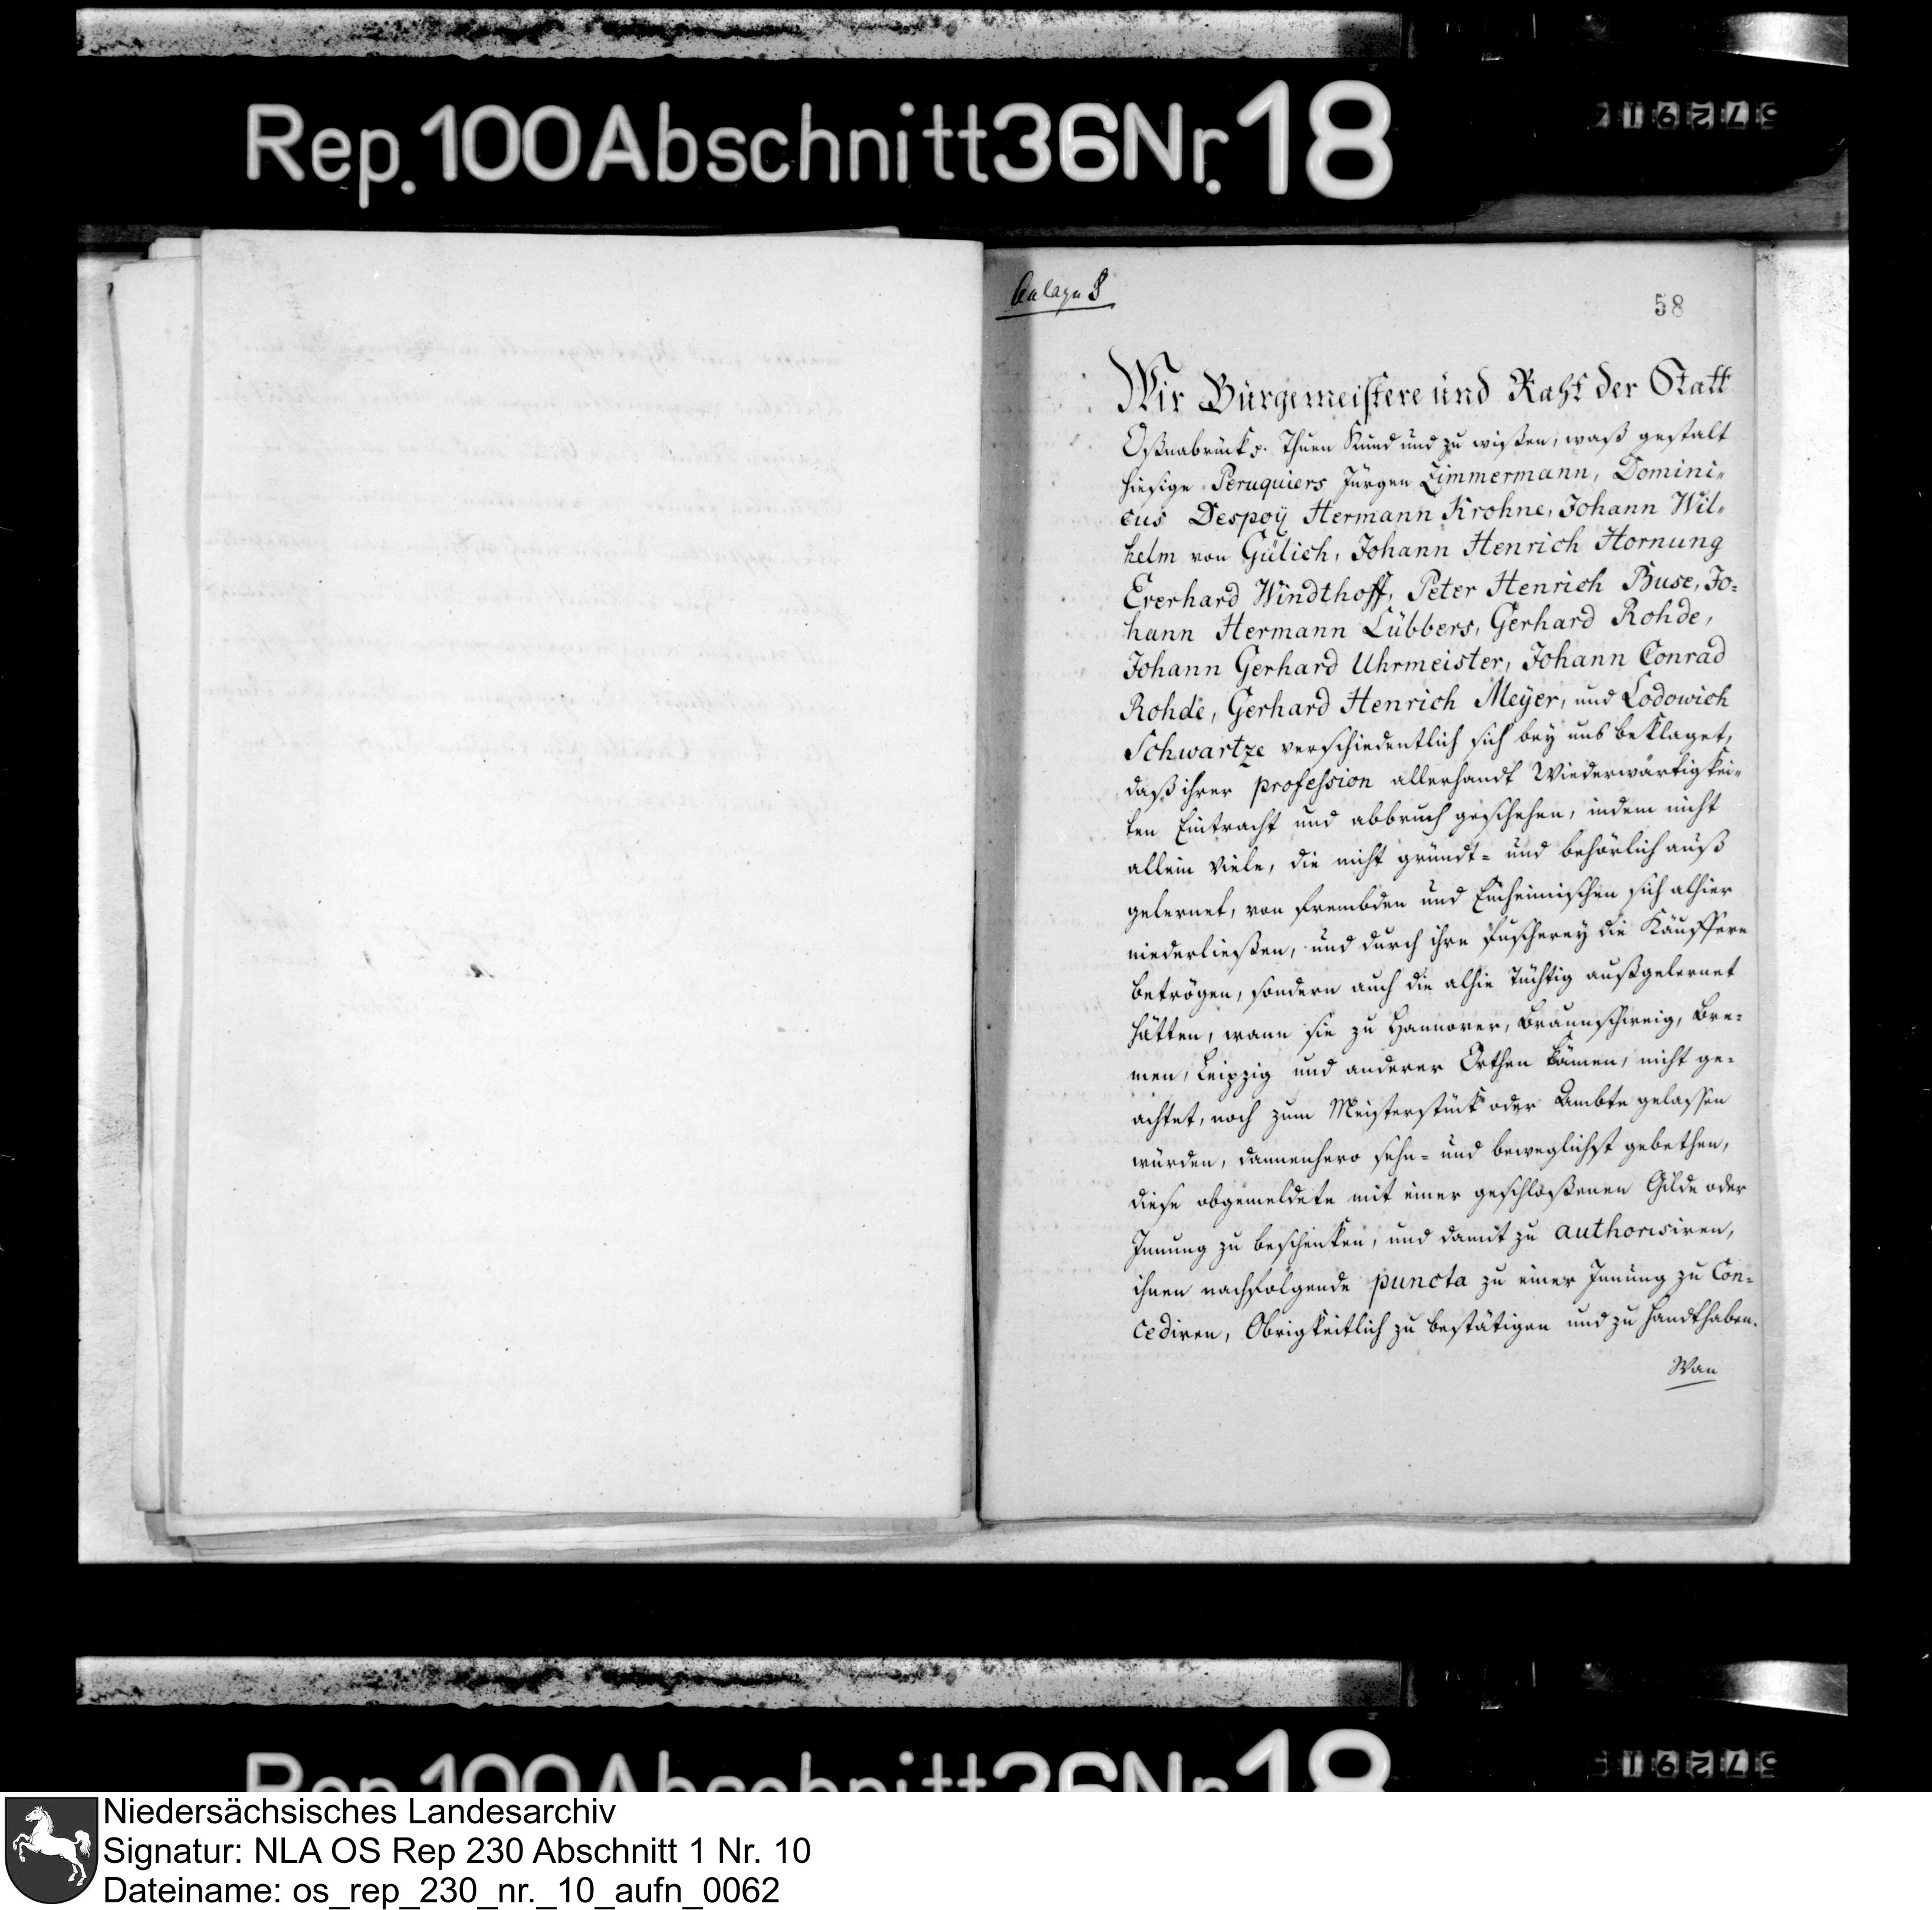 Rep. 100 Abschnitt 36 Nr. 18
Anlage 8
58
Wir Bürgemeistere und Raht der Statt
Oßnabrück p. Thuen Kund und zu wißen, waß gestalt
hiesige Peruquiers Jürgen Zimmermann, Domini„
cus Despoÿ Hermann Krohne, Johann Wil„
helm von Gülich, Johann Henrich Hornung
Ererhard Windthoff, Peter Henrich Buse, Jo=
hann Hermann Lübbers, Gerhard Rohde,
Johann Gerhard Uhrmeister, Johann Conrad
Rohde, Gerhard Henrich Meÿer, und Lodowich
Schwartze verschiedentlich sich bey uns beklaget,
daß ihrer profession allerhandt Wiederwärtigkei„
ten Eintracht und abbruch geschehen, indem nicht
allein Viele, die nicht gründt= und behörlich auß
gelernet, von frembden und Einheimischen sich alhier
niederließen, und durch ihre fuscherey die Käuffere
betrögen, sondern auch die alhie Tüchtig außgelernet
hätten, wann sie zu Hannover, Braunschweig, Bre=
men, Leipzig und anderer Orthen kämen, nicht ge=
achtet, noch zum Meisterstück oder Ambte gelassen
würden, dannenhero sehn= und beweglichst gebethen,
diese obgemeldete mit einer geschloßenen Gilde oder
Innung zu beschenken, und damit zu authorisiren,
ihnen nachfolgende puncta zu einer Innung zu Con=
cediren, Obrigkeitlich zu bestätigen und zu handthaben.
Wan
Rep. 100 Abschnitt 36 Nr. 18
Niedersächsisches Landesarchiv
Signatur: NLA OS Rep 230 Abschnitt 1 Nr. 10
Dateiname: os_rep_230_nr._10_aufn_0062